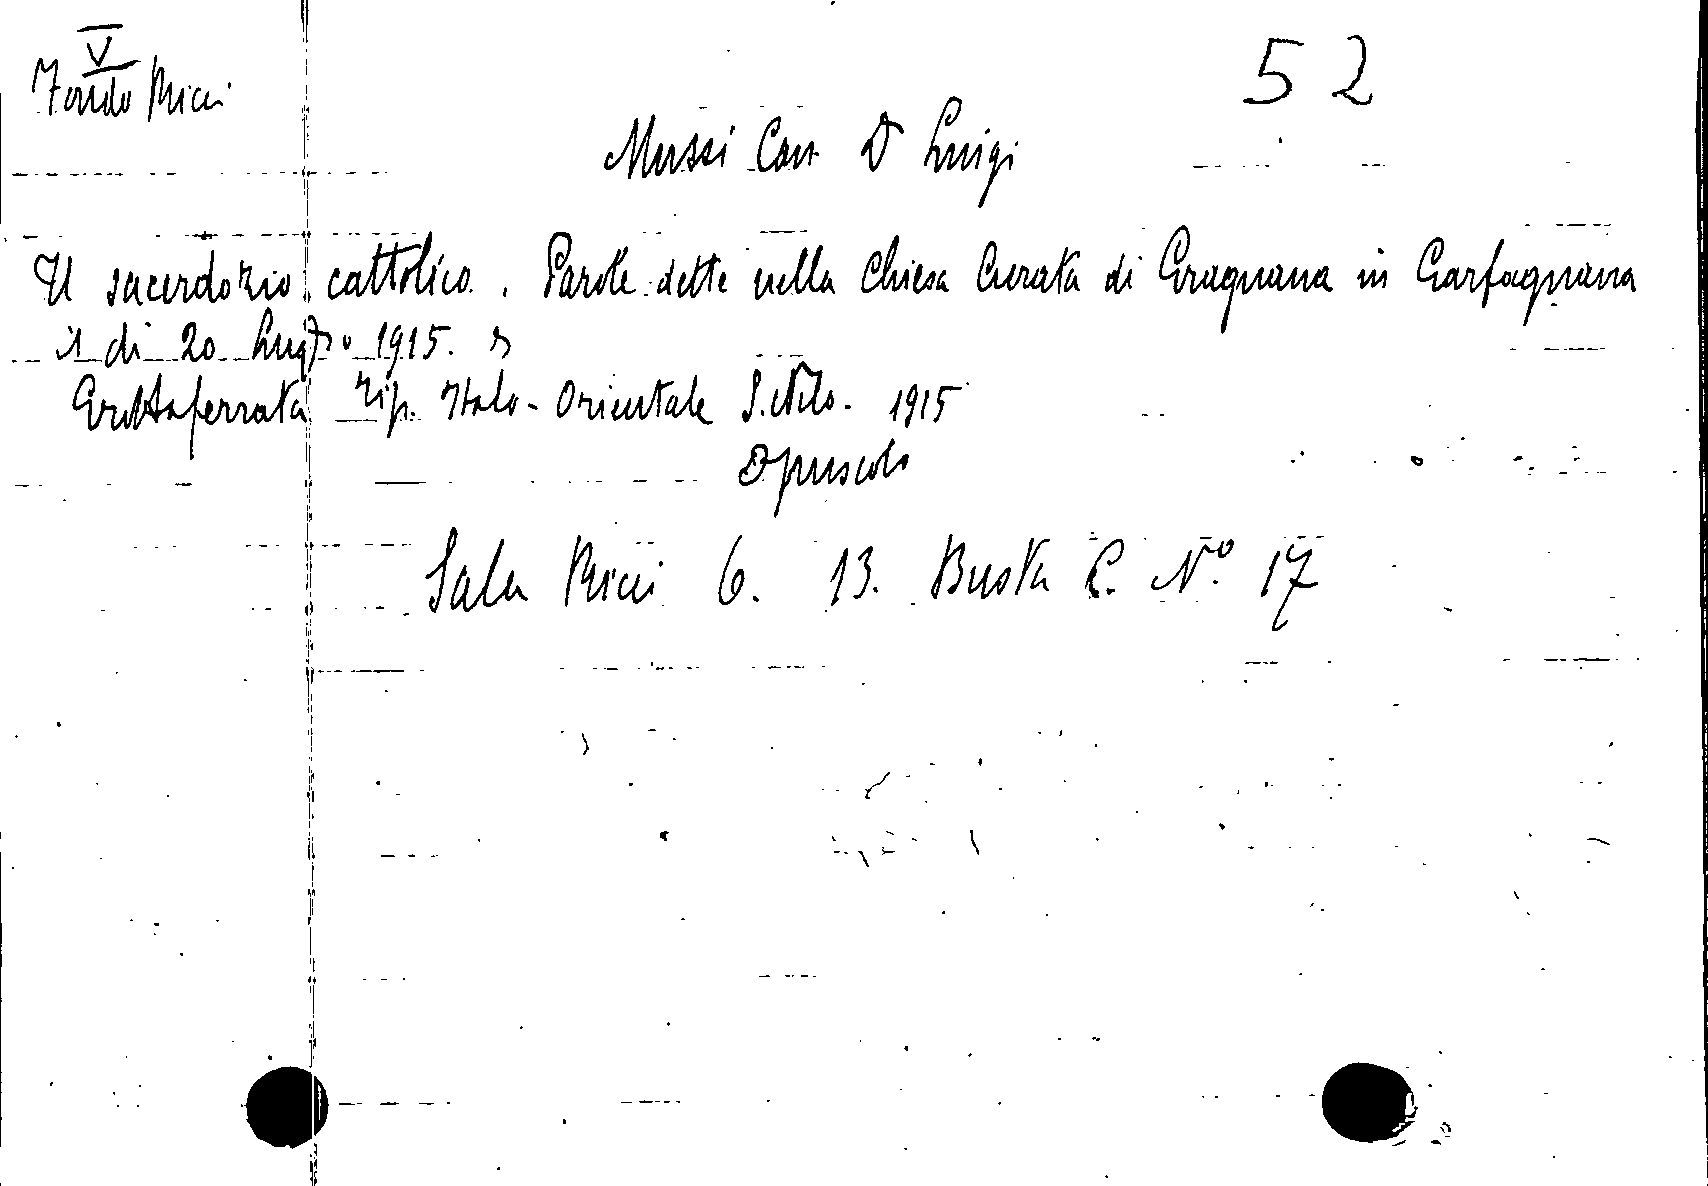 V
Fondo Ricci
52
Mussi Can. D Luigi
Il sacerdozio cattolico. Parole dette nella Chiesa Curata di Gragnana in Garfagnana
il di 20 Luglio 1915.
Grottaferrata Tip. Italo-Orientale S. Nilo. 1915
Opuscolo
Sala Ricci 6. 13. Busta C. Nº 17